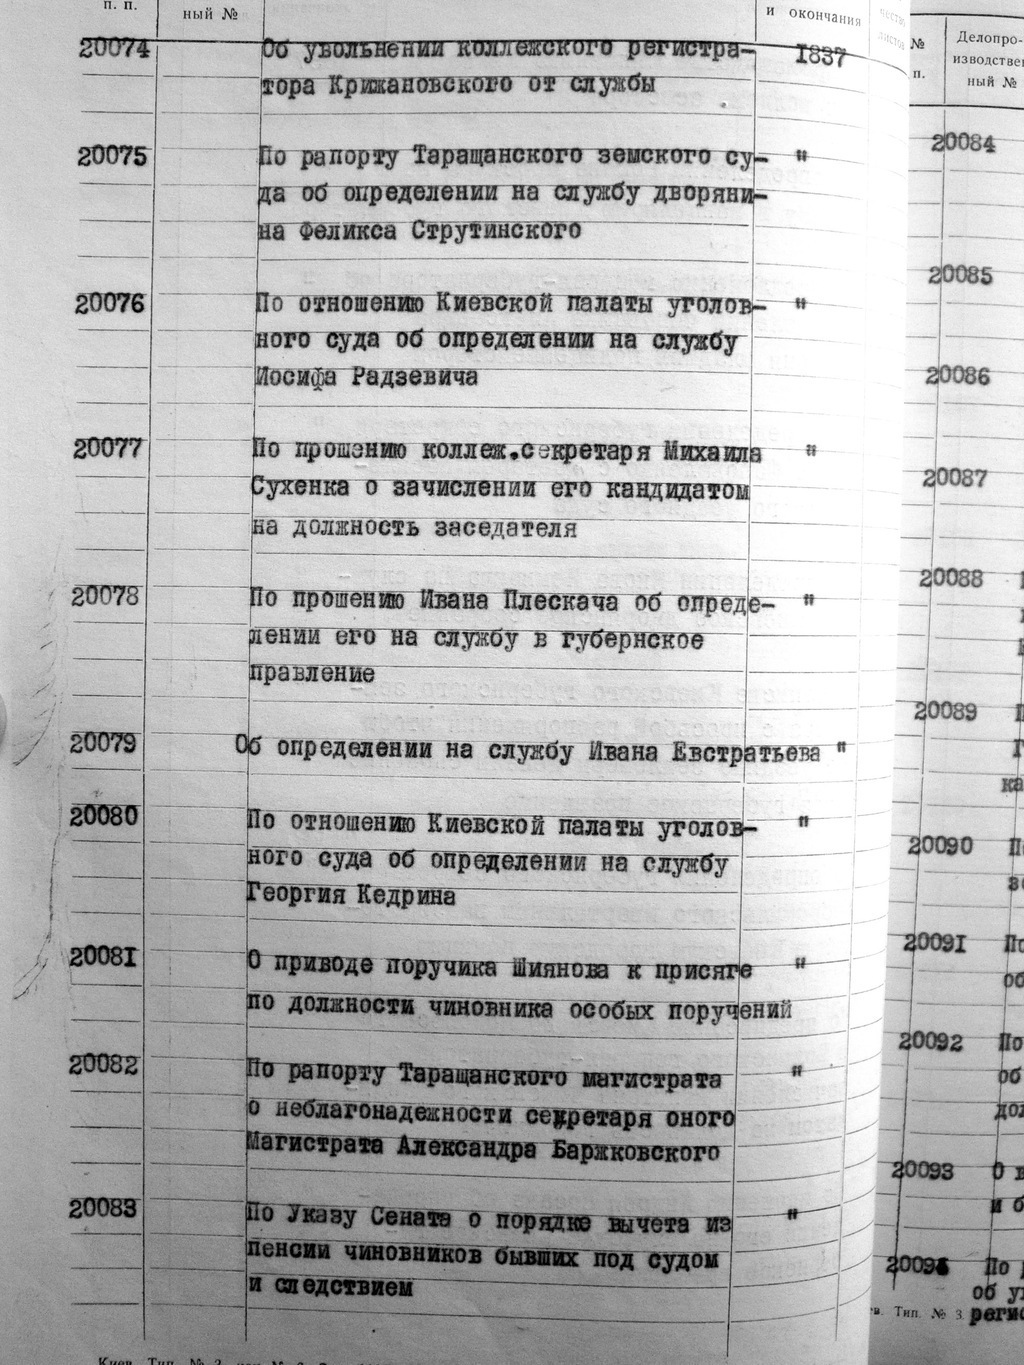 п. п.
ный №
и окончания
20074 Об увольнении коллежского регистра- 1837
тора Крижановского от службы
20075 По рапорту Таращанского земского су- "
да об определении на службу дворяни-
на Феликса Струтинского
20076 По отношению Киевской палаты уголов- "
ного суда об определении на службу
Иосифа Радзевича
20077 По прошению коллеж.секретаря Михаила "
Сухенка о зачислении его кандидатом
на должность заседателя
20078 По прошению Ивана Плескача об опреде- "
лении его на службу в губернское
правление
20079 Об определении на службу Ивана Евстратьева "
20080 По отношению Киевской палаты уголов- "
ного суда об определении на службу
Георгия Кедрина
20081 О приводе поручика Шиянова к присяге "
по должности чиновника особых поручений
20082 По рапорту Таращанского магистрата "
о неблагонадежности секретаря оного
Магистрата Александра Баржковского
20083 По Указу Сената о порядке вычета из "
пенсии чиновников бывших под судом
и следствием
№
п.
Делопро-
изводствен
ный №
20084
20085
20086
20087
20088
20089
ка
20090
20091 По
об
20092 По
об
дол
20093 О в
и б
2009 По
об ув
Тип. № 3 регис